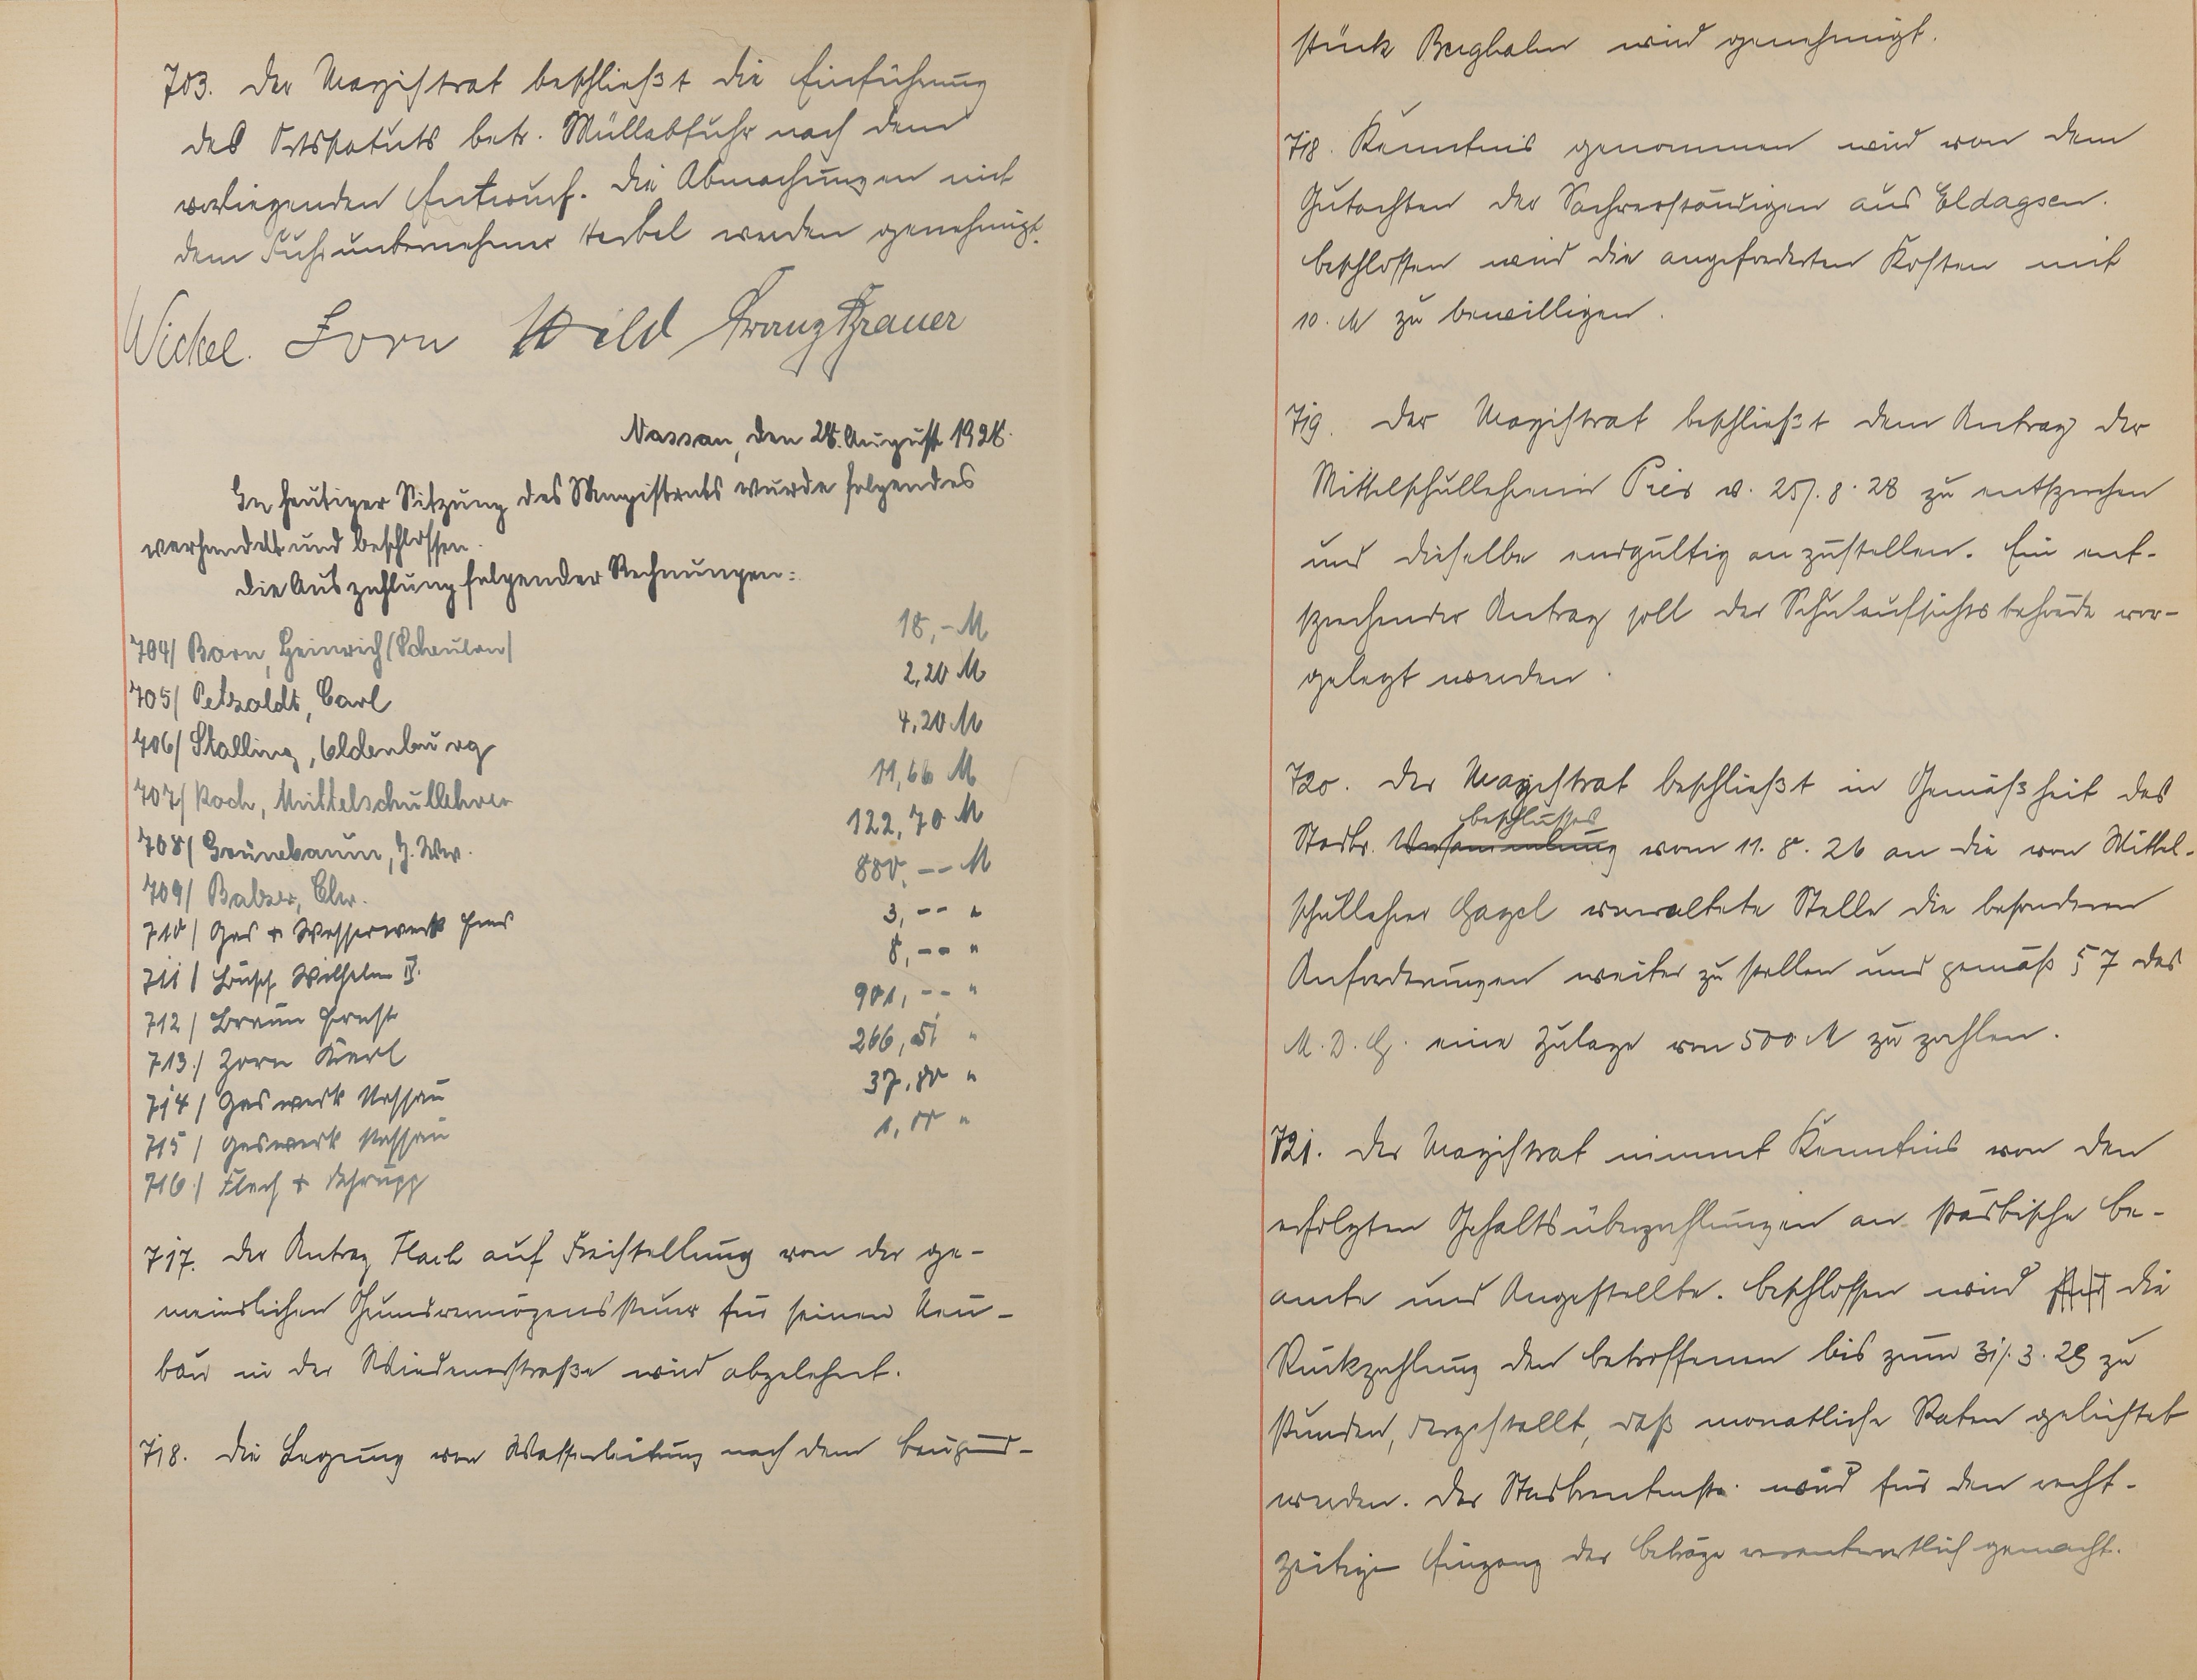 703. Der Magistrat beschließt die Einführung
des Ortsstatuts betr. Müllabfuhr nach dem
vorliegenden Entwurf. Die Abmachungen mit
dem Fuhrunternehmer Herbel werden genehmigt.
Wickel. Zorn Wild Franz Brauer
Nassau, den 28. August 1928.
In heutiger Sitzung des Magistrats wurde folgendes
verhandelt und beschlossen.
Die Auszahlung folgender Rechnungen:
704/ Born, Heinrich (Scheuern) 18,- M
705/ Petzoldt, Carl 2,20 M
706/ Stalling, Oldenburg 4,20 M
707/ Koch, Mittelschullehrer 11,66 M
708/ Grünebaum, J. Ww. 122,70 M
709/ Balzer, Chr. 880,-- M
710/ Gas & Wasserwerk Ems 3,-- "
711/ Busch Wilhelm IV. 8,-- "
712/ Braun Ernst 901,-- "
713./ Zorn Karl 266,51 "
714/ Gaswerk Nassau 37,80 "
715/ Gaswerk Nassau 1,00 "
716./ Flach & Schrupp
717. Der Antrag Flach auf Freistellung von der ge-
meindlichen Grundvermögenssteuer für seinen Neu-
bau in der Windenerstraße wird abgelehnt.
718. Die Legung von Wasserleitung nach dem Baugrund-
stück Berghahn wird genehmigt.
718. Kenntnis genommen wird von dem
Gutachten der Sachverständigen aus Eldagsen.
Beschlossen wird die angeforderten Kosten mit
10. M zu bewilligen.
719. Der Magistrat beschließt dem Antrag der
Mittelschullehrerin Pies v. 25/. 8. 28 zu entsprechen
und dieselbe endgültig anzustellen. Ein ent-
sprechender Antrag soll der Schulaufsichtsbehörde vor-
gelegt werden.
720. Der Magistrat beschließt in Gemäßheit des
beschlusses
Stadtv. Versammlung vom 11. 8. 26 an die von Mittel-
schullehrer Gagel verwaltete Stelle die besonderen
Anforderungen weiter zu stellen und gemäß § 7 des
M. D. G. eine Zulage von 500 M zu zahlen.
721. Der Magistrat nimmt Kenntnis von den
erfolgten Gehaltsüberzahlungen an städtische Be-
amte und Angestellte. Beschlossen wird die
Rückzahlung den betroffenen bis zum 31/. 3. 29 zu
stunden, dergestallt, daß monatliche Raten geleistet
werden. Der Stadtrentmstr. wird für den recht-
zeitigen Eingang der Beträge verantwortlich gemacht.